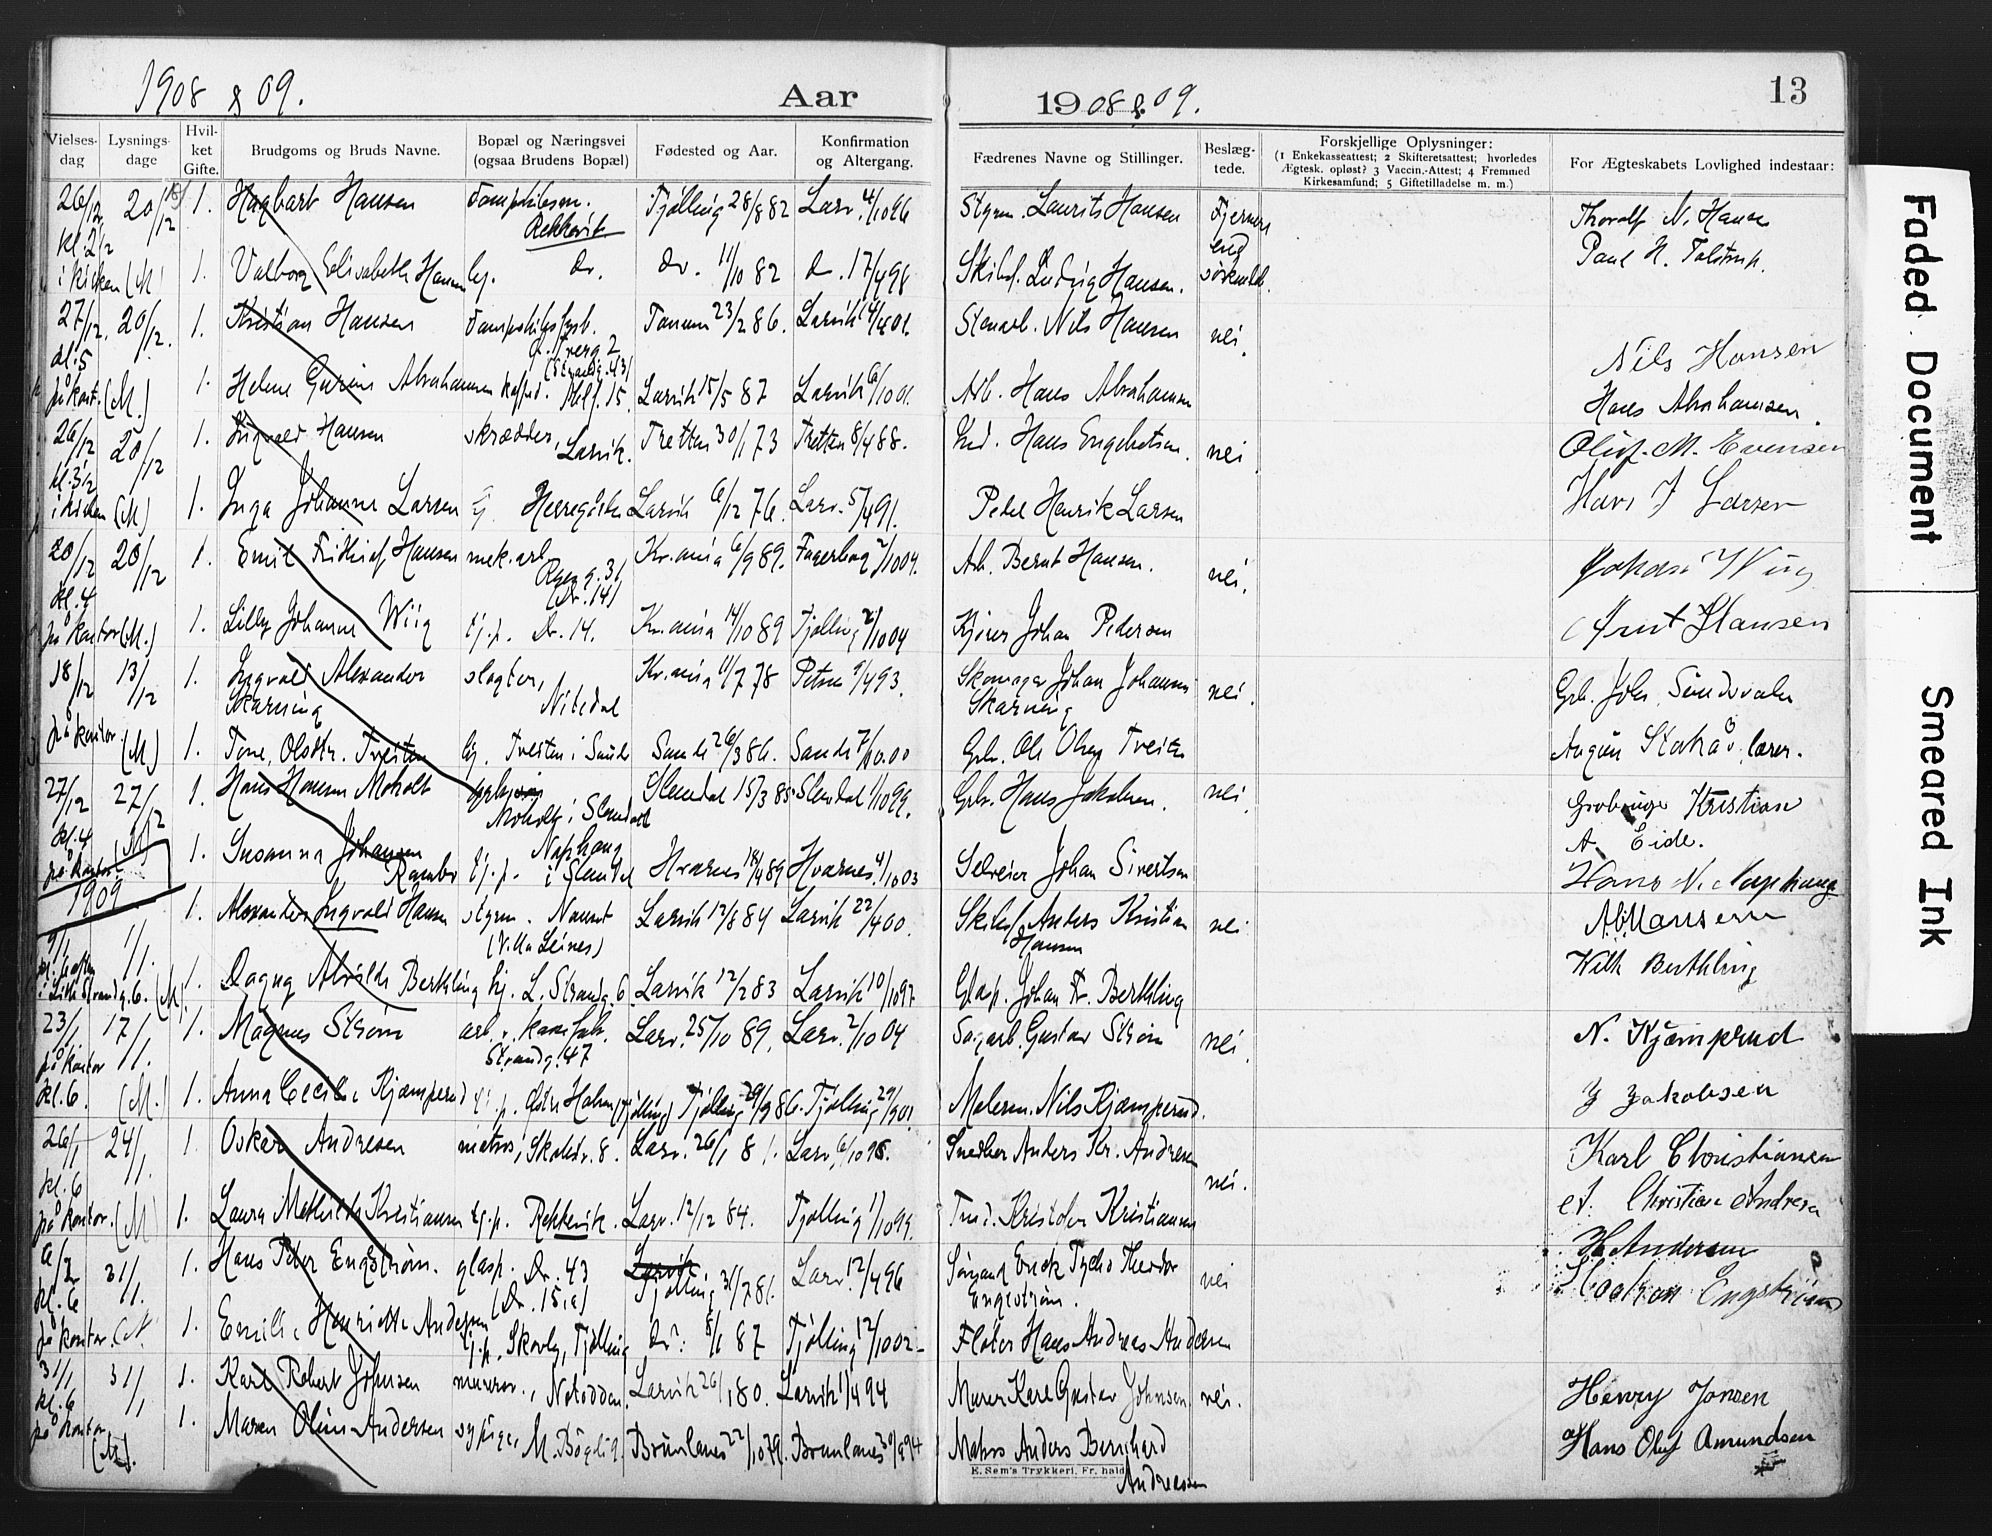 1908 & 09.
Aar
1908 & 09.
13
Vielses-dag
Lysnings-dage
Hvil-ket Gifte.
Brudgoms og Bruds Navne.
Bopæl og Næringsvei
(ogsaa Brudens Bopæl)
Fødested og Aar.
Konfirmation
og Altergang.
Fædrenes Navne og Stillinger.
Beslæg-tede.
Forskjellige Oplysninger:
(1 Enkekasseattest; 2 Skifteretsattest; hvorledes
Ægtesk. opløst? 3 Vaccin.-Attest; 4 Fremmed
Kirkesamfund; 5 Giftetilladelse m. m.)
For Ægteskabets Lovlighed indestaar:
26/12 20/12 1. Hagbart Hansen
Rekkevik
Tjølling 28/8 82 Larv. 4/10 96
Styrm. Laurits Hansen
Fjernere end
Thoralf N. Hansen
kl. 2½ i kirken (M) 1. Valborg Elisabeth Hansen hj. do. do. 11/10 82 do. 17/4 98
Ludvig Hansen.
Paul H. Talstrup.
27/12. 20/12. 1. Kristian Hansen
Tanum 23/2 86. Larvik
Stenarb. Nils Hansen nei.
Nils Hansen
kl. 5 på kont. (M.) 1. Helene Abrahamsen
Larvik 15/5 87 Larvik 6/10 01.
Arb. Hans Abrahamsen
Hans Abrahamsen.
26/12 20/12 1. Ingvald Hansen skrædder, Larvik. Tretten 30/1 73 Tretten 8/4 88.
Hans Engebretsen. nei
Oluf. M. Evensen
kl. 3½ i kirken (M) 1. Inga Johanne Larsen
Larvik 6/12 76. Larv. 5/4 91.
Pedel Henrik Larsen
Hans J Larsen
20/12 20/12 1. Emil Frithiof Hansen mek. arb.
Kr.ania 6/9 89. Fagerborg 2/10 04.
Arb. Bernt Hansen. nei.
Johan Wiig
kl. 4 på kontor (M.) 1. Lilly Johanne Wiig tj.p. Dr. 14. Kr.ania 14/10 89 Tjølling 2/10 04
Kjører Johan Pedersen
Arnt Hansen
18/12 13/12 1. Ingvald Alexander
Skarning
slagter,
Nitedal
Kr.ania 11/7 78
Skomager Johan Johansen
Skarning
nei.
på kontor. (M) 1. Tone Olsdtr. Tveiten hj. Tveiten i Sande Sande 26/3 86. Sande 7/10.00
Grb. Ole Olsen Tveiten
lærer.
27/12 27/12 1. Hans Hansen Moholt
Moholt i Slemdal
Slemdal 15/3 85. Slemdal 1/10 99.
Grb. Hans Jakobsen. nei
Kristian
A. Eide.
kl. 4 på kontor. (M) 1. Susanna Johansen
Ramber
tj.p. Naphaug
i Slemdal
Hvarnes 18/4 89 Hvarnes 4/10 03
Selveier Johan Sivertsen
Hans N. Naphaug
1909
9/1 1/1. 1. Alexander Ingvald Hansen styrm. Nanset
(Villa Leines)
Larvik 12/8 84 Larvik 22/4 00.
Anders Kristian
Hansen
nei
(M). 1. Dagny Alvilde Berthling hj. L. Strandg. 6. Larvik 12/2 83 Larvik 10/10 97
Glasp. Johan Fr. Berthling
Wilh Berthling
23/1 17/1. 1. Magnus Strøm
Strandg. 47
Larv. 25/10 89. Larv. 2/10 04
Sagarb. Gustav Strøm nei.
N. Kjæmperud
på kontor kl. 6. (M.) 1. Anna Cecilie Kjæmperud
Tjølling 29/9 86. Tjølling 29/9 01.
Malerm. Nils Kjæmperud.
Jakobsen
26/1 24/1. 1. Oskar Andresen matros, Skolestr. 8. Larv. 26/1 81. Larv.
Snedker Anders Kr. Andresen
nei.
Karl Christiansen
kl. 6 på kontor. (M) 1. Laura Mathilde Kristiansen tj.p. Rekkevik. Larv. 12/12 84. Tjølling 1/10 99.
Kristofer Kristiansen
Christian Andresen
6/2 31/1. 1. Hans Peter Engstrøm. glasp. Dr. 43
(Dr. 15a)
Larvik
Tjølling 31/7 81. Larv. 12/4 96
Erick Tycho Theodor
Engestrøm.
nei
H. Andersen
Engstrøm
kl. 6 på kontor. (M. 1. Emilie Henriette Andersen
tj.p. Skovly, Tjølling do: 8/1 87 Tjølling 12/10 02
Fløter Hans Andreas Andersen
31/1 31/1 1. Karl Robert Johnsen
Notodden. Larvik 26/1 80. Larvik 1/4 94
Murer Karl Gustav Johnsen nei.
Henry Jonsen
kl. 6 på kontor (M). 1. Maren Oline Andersen sypige, M. Bøglig. Brunlanes 22/10 79. Brunlanes 30/9 94
Matros Anders Bernhard
Andreassen
Hans Oluf Amundsen
E. Sem's Trykkeri, Fr.hald
Faded Document
Smeared Ink